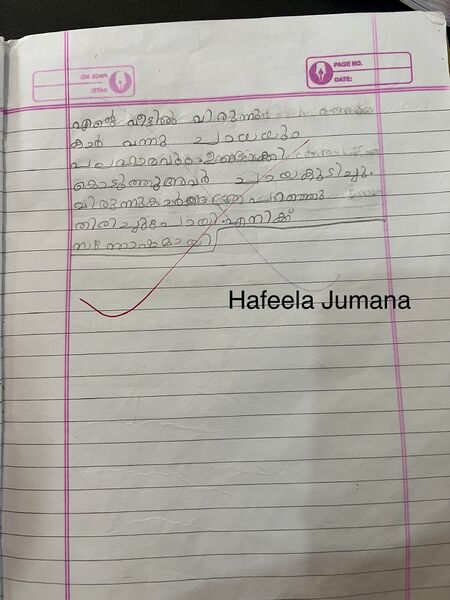 PAGE NO.
DATE:
എന്റെ വീട്ടിൽ വിരുന്നു
കാർ വന്നു ചായയും
പലഹാരവും ഉണ്ടാക്കി
കൊടുത്തു അവർ ചായകുടിച്ചു.
വിരുന്നുകാർ യാത്ര പറഞ്ഞു
തിരിച്ചു പോയി എനിക്ക്
സന്തോഷമായി
Hafeela Jumana